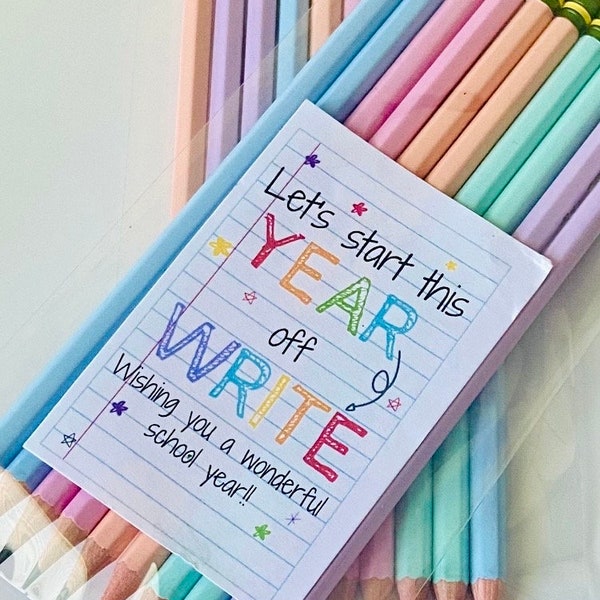 Let's start this
YEAR
off
WRITE
Wishing you a wonderful
school year!!